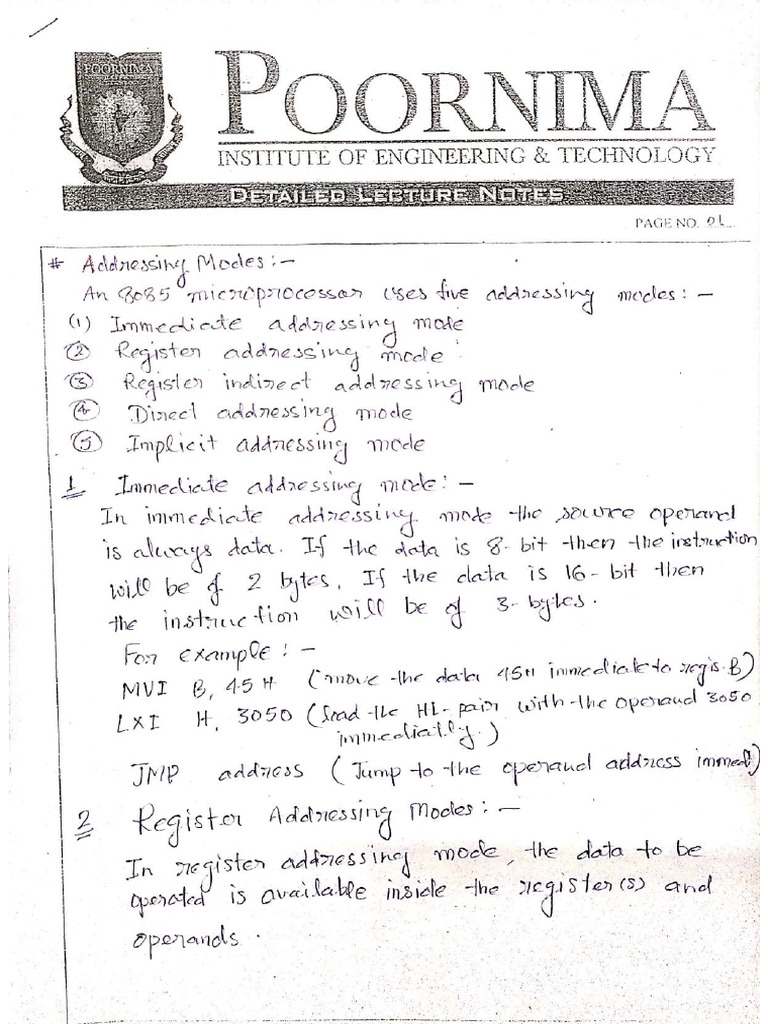 POORNIMA
POORNIMA
INSTITUTE OF ENGINEERING & TECHNOLOGY
DETAILED LECTURE NOTES
PAGE NO.
# Addressing Modes :-
An 8085 microprocessor uses five addressing modes : -
(1) Immediate addressing mode
(2) Register addressing mode
(3) Register indirect addressing mode
(4) Direct addressing mode
(5) Implicit addressing mode
1 Immediate addressing mode : -
In immediate addressing mode the source operand
is always data. If the data is 8-bit then the instruction
will be of 2 bytes. If the data is 16-bit then
the instruction will be of 3-bytes.
For example : -
MVI B, 45H (move the data 45H immediate to regis. B)
LXI H, 3050 (load the HL-pair with the operand 3050
immediatly.)
JMP address (Jump to the operand address immedi)
2 Register Addressing Modes : -
In register addressing mode, the data to be
operated is available inside the register(s) and
operands.